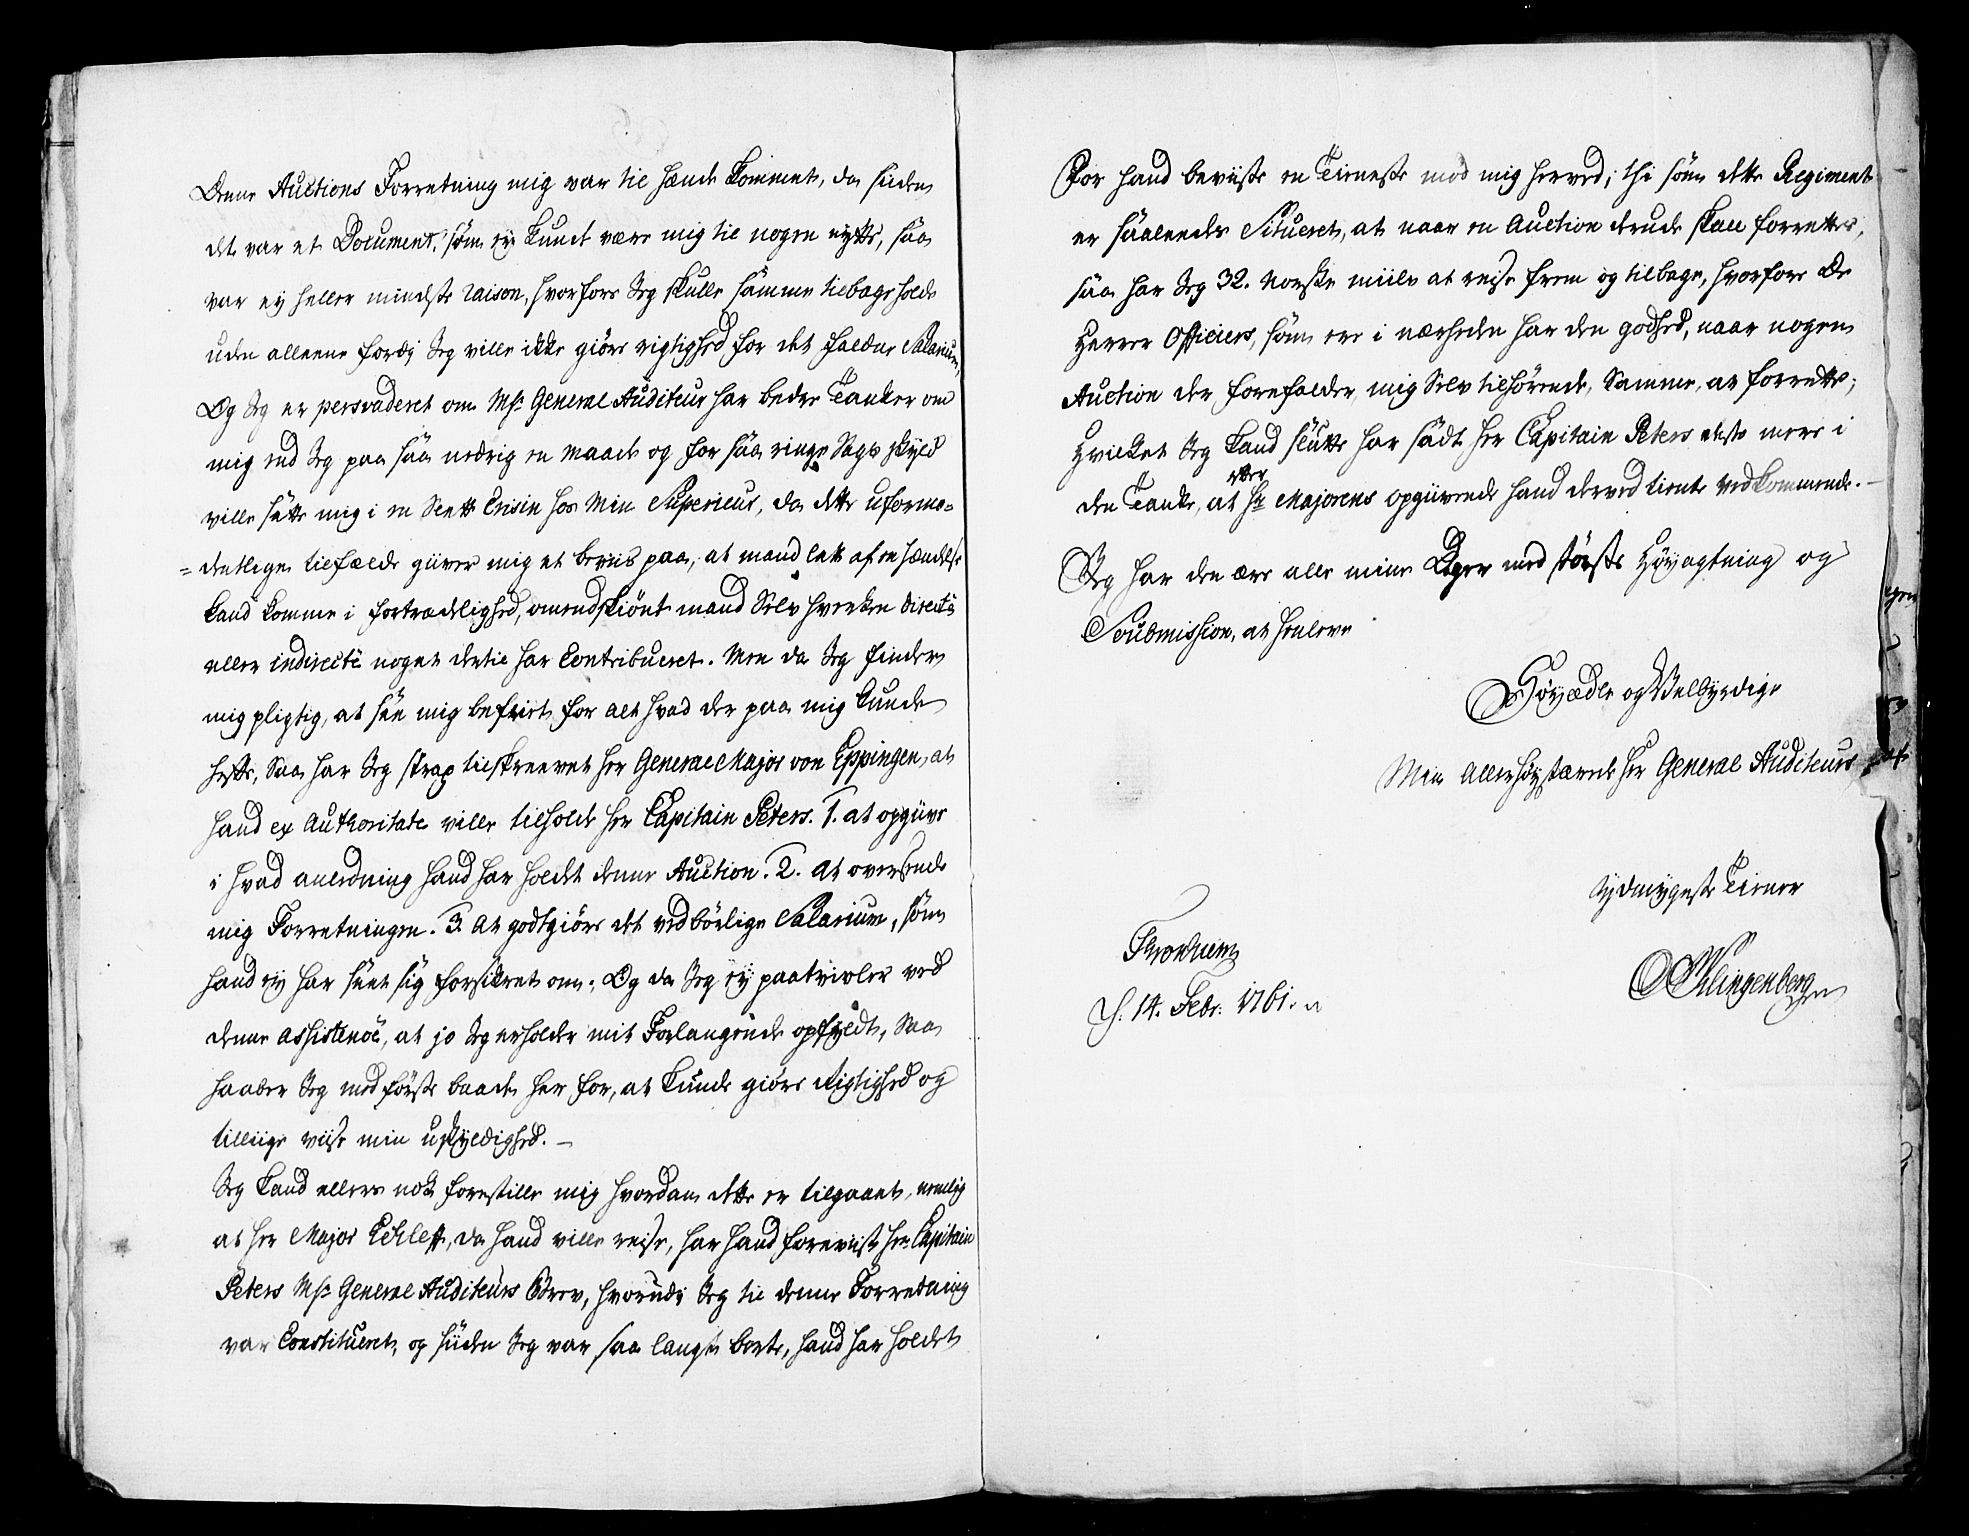 Denne Auctions Forretning mig var til hænde kommet, da siden
det var et Document, som ey kunde være mig til nogen nytte, saa
var ey heller mindste raison, hvorfore Jeg skulle samme tilbageholde
uden alleene fordj Jeg ville ikke giöre rigtighed for det faldne Salarium,
Og Jeg er persvaderet om Msr General Auditeur har bedre Tanker om
mig end Jeg paa saa nedrig en maade og for saa ringe Sags skyld
ville sætte mig i en Slett Crisin hos Min Superieur, da dette uformo=
=dentlige tilfælde giiver mig et beviis paa, at mand lett af en hændelse
kand komme i fortrædelighed, omendskiönt mand Selv hverken directe
eller indirecte noget dertil har Contribueret. Men da Jeg finder
mig pligtig, at see mig befriet for alt hvad der paa mig kunde
hefte, Saa har Jeg strax tilskreevet Hr General Major von Eppingen, at
hand ex Authoritate ville tilholde Hr Capitain Peters. 1. at opgiive
i hvad anledning hand har holdt denne Auction. 2. At oversende
mig Forretningen. 3. At godtgiöre det vedbörlige Salarium, som
hand ey har seet sig forsikret om; Og da Jeg ey paatvivler ved
denne Assistence, at jo Jeg erholder mit Forlangende opfyldt, Saa
haaber Jeg med förste baade her for, at kunde giöre Rigtighed og
tilliige viise min uskyldighed. —
Jeg kand ellers nok forestille mig hvordan dette er tilgaaet, nemlig
at Hr Major Eckleff, da hand ville reise, har hand foreviist Hr Capitain
Peters Msr General Auditeurs Brev, hvorudi Jeg til denne Forretning
var Constitueret, og siiden Jeg var saa langt borte, hand har holdet
For hand beviiste en Tieneste mod mig herved; thi som dette Regiment
er saaleedes Situeret, at naar en Auction derude skall forrettes,
saa har Jeg 32. Norske miile at reise frem og tilbage, hvorfore De
Herrer Officiers, som ere i nærheden har den godhed, naar nogen
Auction der forefalder, mig Selv tilhörende, Samme, at forrette;
Hvilket Jeg kand slutte har sadt Hr Capitain Peters deste mere i
den Tanke, at efter Hr Majorens opgiivende hand derved tiente Vedkommende. —
Jeg har den ære alle mine Dager med störste Höyagtning og
Soubmission, at henleve
Höyædle og Velbyrdige
Min Allerhöystærede Hr General Auditeurs
Ydmygeste Tiener
Klingenberg
Tronhiem
d. 14. Febr. 1761.